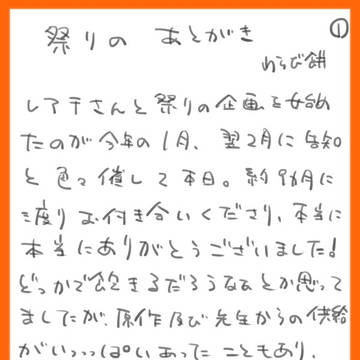 ①
祭りの あとがき
わらび餅
レア子さんと祭りの企画を始め
たのが今年の1月、翌2月に告知
と色々催して本日。約9ヶ月に
渡りお付き合いくださり、本当に
本当にありがとうございました!
どっかで飽きるだろうなぁとか思って
ましたが、原作及び先生からの供給
がいっっっぱいあったこともあり、